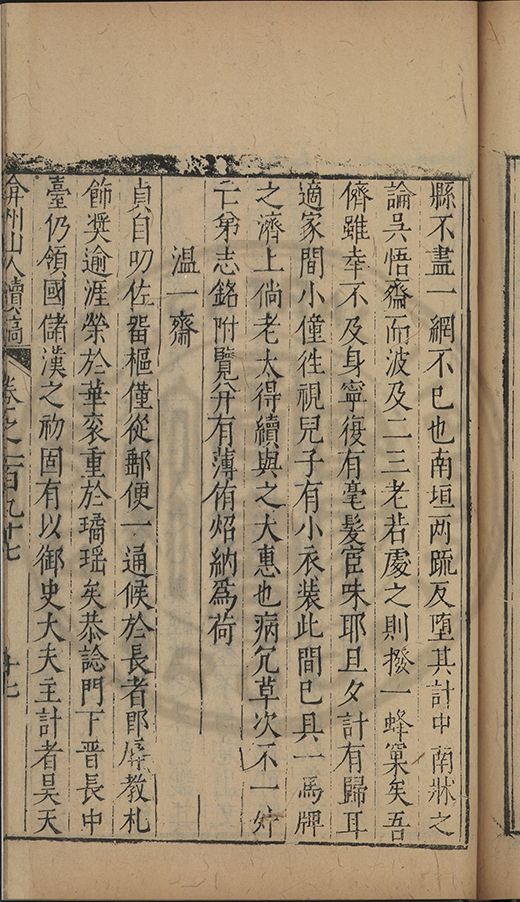 縣不盡一網不已也南垣两疏反墮其計中南牀之
論吳悟齋而波及二三老若處之則撥一蜂窠矣吾
儕雖幸不及身寧復有毫髮宦味耶且夕計有歸耳
適家間小僮徃視兒子有小衣装此間已具一馬牌
之濟上倘老太得續與之大惠也病冗草次不一
亡弟志銘附覽并有薄侑炤納爲荷
温一齋
貞自叨佐畱樞僅從郵便一通候於長者即辱教札
飾奨逾涯榮於華衮重於璚瑶矣恭諗門下晋長中
臺仍領國儲漢之初固有以御史大夫主計者吴天
弇州山人續稿 卷之一百九十七 十七